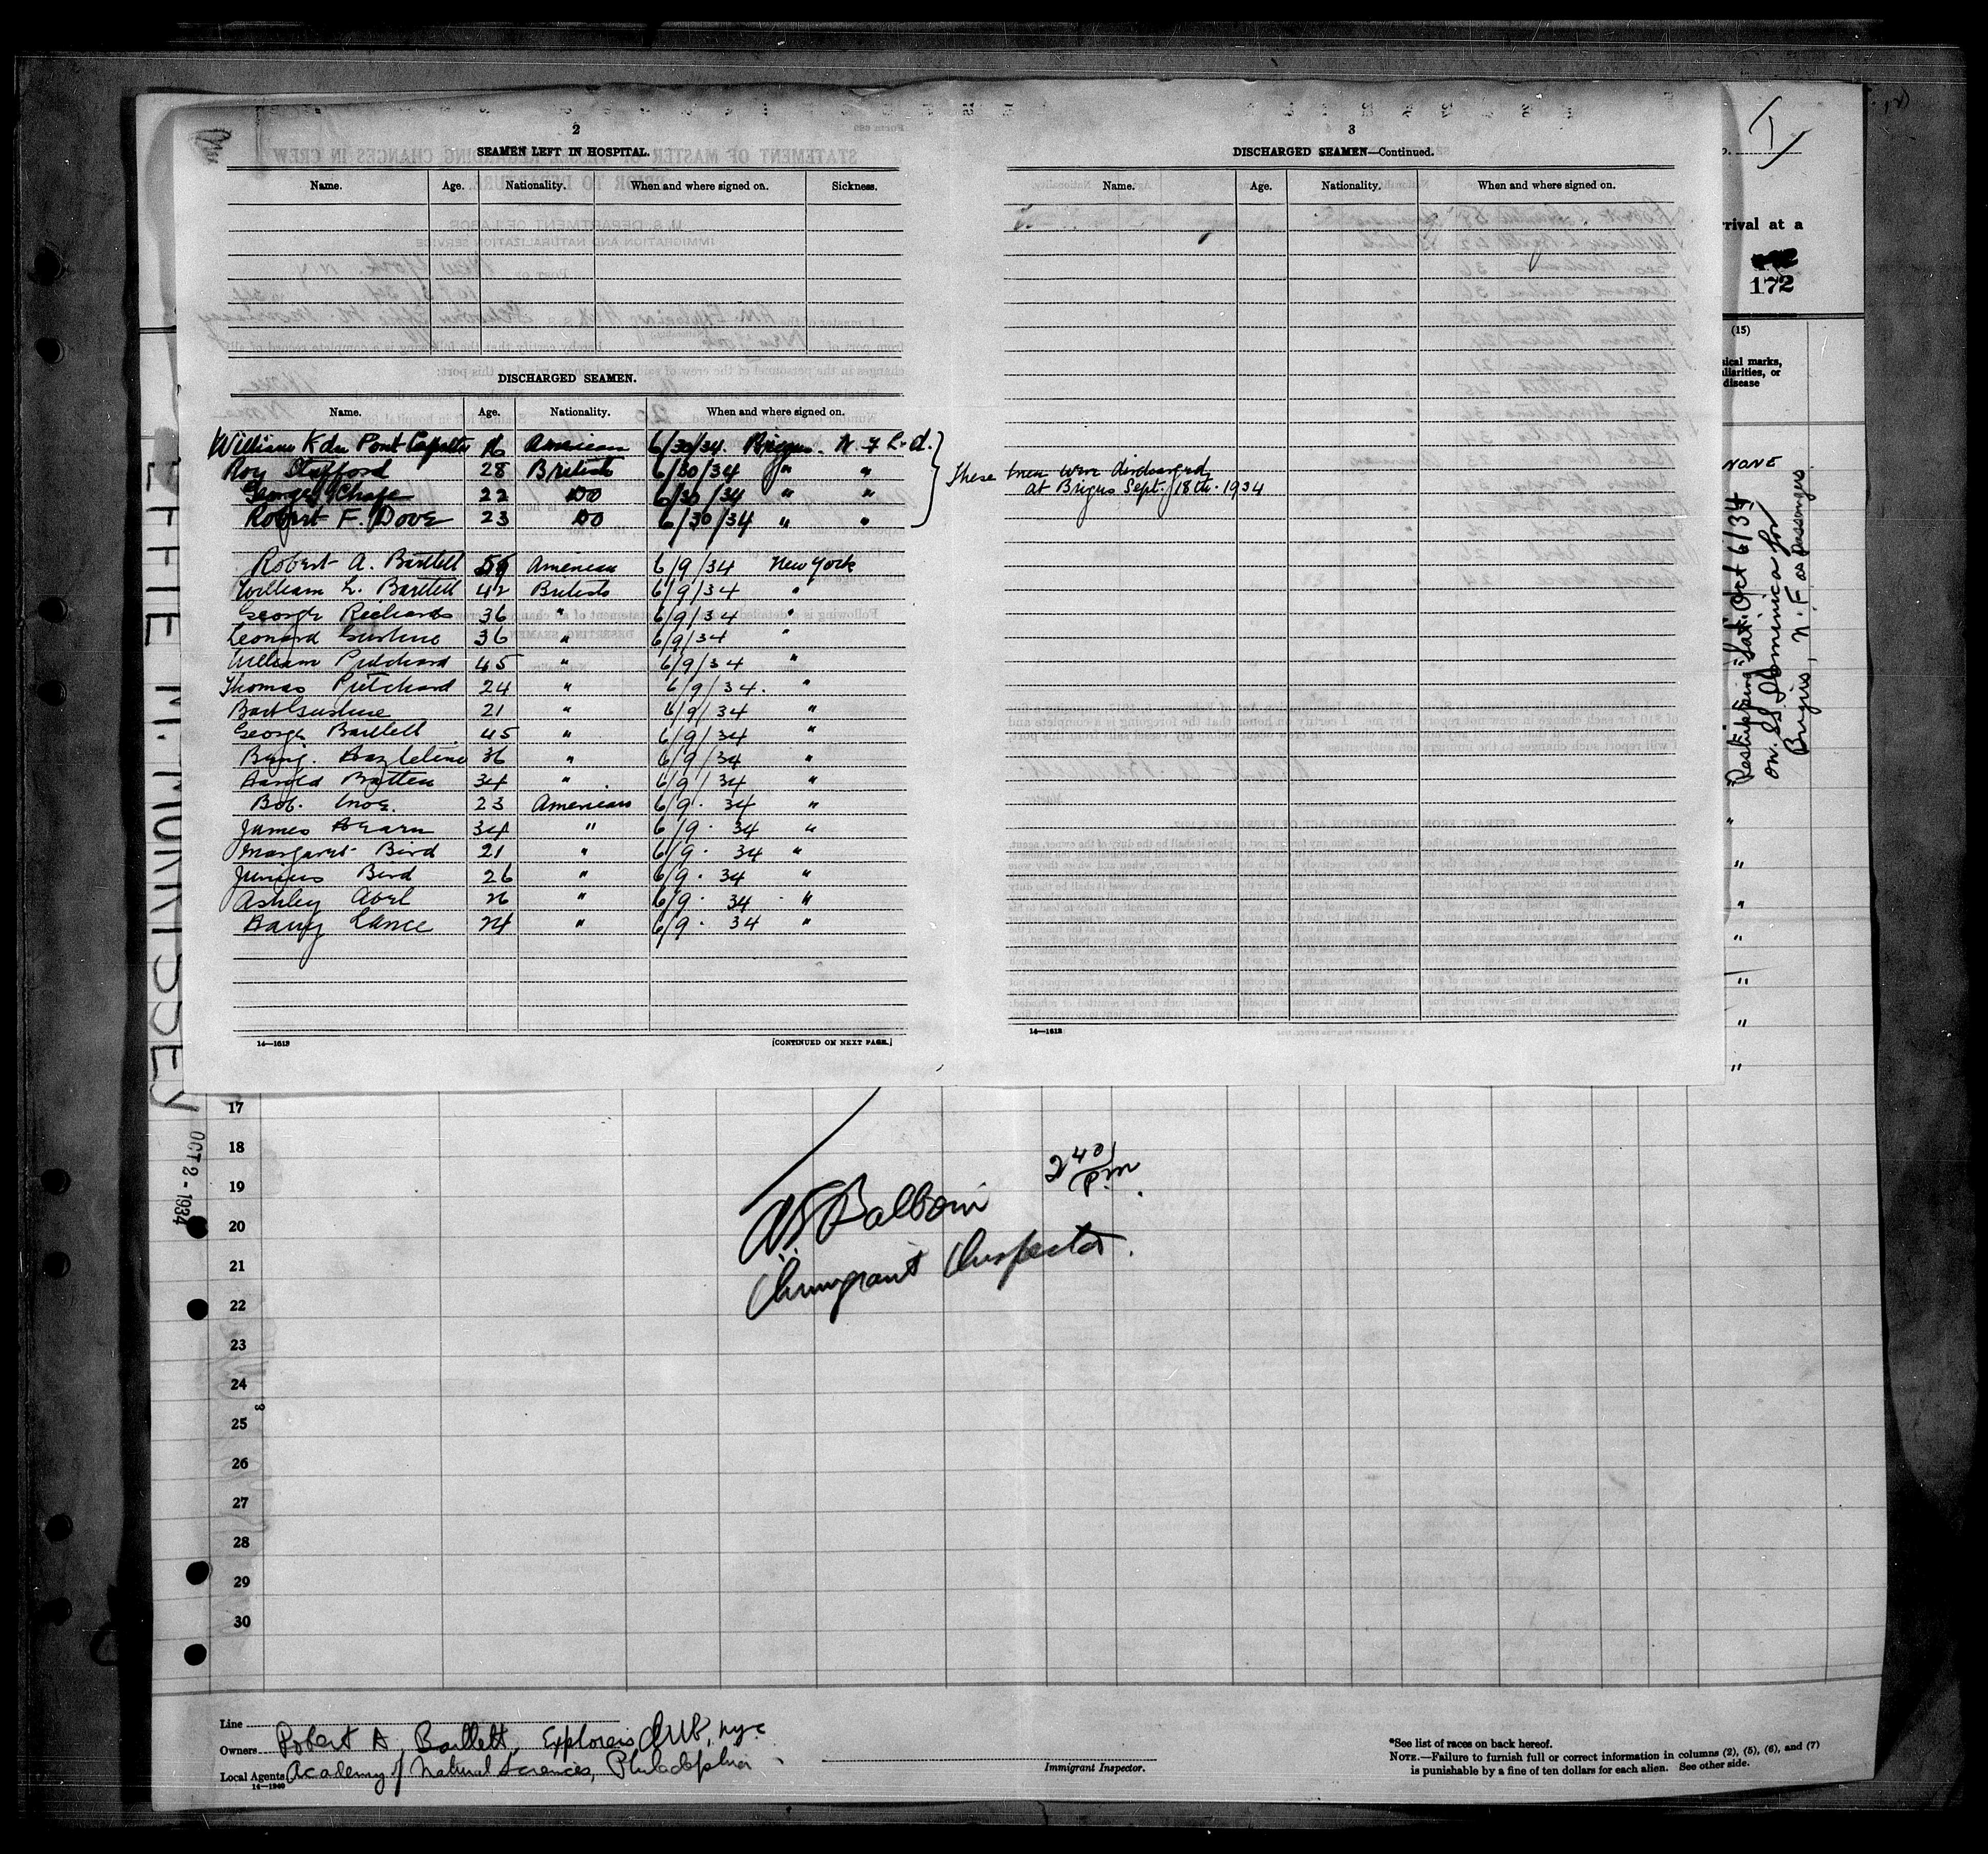 2
SEAMEN LEFT IN HOSPITAL.
Name. Age. Nationality. When and where signed on. Sickness.
DISCHARGED SEAMEN.
Name. Age. Nationality. When and where signed on.
William K du Pont 16 American 6/30/34. Brigus. N. F L d.
Roy Stafford 28 British 6/30/34 " "
George Chafe 22 DO 6/30/34 " "
Robert F. Dove 23 DO 6/30/34 " "
Robert A. Bartlett American 6/9/34 New York
William L. Bartlett 42 British 6/9/34 "
George Richards 36 " 6/9/34 "
Leonard Gushue 36 " 6/9/34 "
William Pritchard 45 " 6/9/34 "
Thomas Pritchard 24 " 6/9/34. "
Bart Gushue 21 " 6/9/34 "
George Bartlett 45 " 6/9/34 "
Benj. 36 " 6/9/34 "
Harold Batten 34 " 6/9/34 "
Bob. 23 American 6/9. 34 "
James Hearn 34 " 6/9. 34 "
Margaret Bird 21 " 6/9. 34 "
Junius Bird 26 " 6/9. 34 "
Ashley 26 " 6/9. 34 "
Harry Lance 24 " 6/9. 34 "
14—1613
[CONTINUED ON NEXT PAGE.]
3
DISCHARGED SEAMEN—Continued.
Name. Age. Nationality. When and where signed on.
These men were discharged
at Brigus Sept. 18th. 1934
14—1613
rival at a
172
(15)
sical marks,
liarities, or
disease
NONE
Reshipping Sat. Oct 6/34
on. SS Dominica for
Brigus, N.F as passengers.
" " " " " " "
EFFIE M. MORRISSEY
OCT 2 - 1934
17
18
19
20
21
22
23
24
25
26
27
28
29
30
8
2 40 P.m.
Immigrant Inspector.
Line
Owners Robert A Bartlett, Explorers Club, nyc
Local Agents Academy of Natural Sciences, Philadelphia
14—1240
Immigrant Inspector.
*See list of races on back hereof.
NOTE.—Failure to furnish full or correct information in columns (2), (5), (6), and (7)
is punishable by a fine of ten dollars for each alien. See other side.